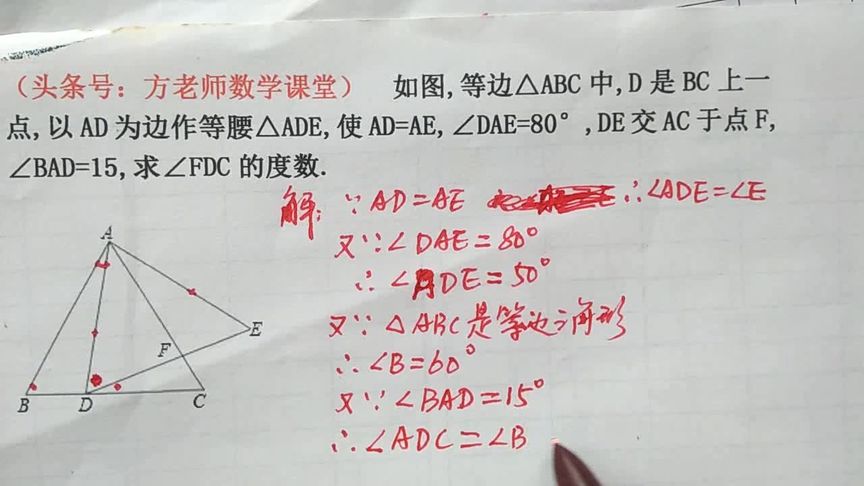 （头条号：方老师数学课堂） 如图,等边△ABC中,D是BC上一
点,以AD为边作等腰△ADE,使AD=AE,∠DAE=80°,DE交AC于点F,
∠BAD=15,求∠FDC的度数.
解: ∵AD=AE ∴∠ADE=∠E
又∵∠DAE=80°
∴∠ADE=50°
又∵△ABC是等边三角形
∴∠B=60°
又∵∠BAD=15°
∴∠ADC=∠B
A
E
F
B
D
C